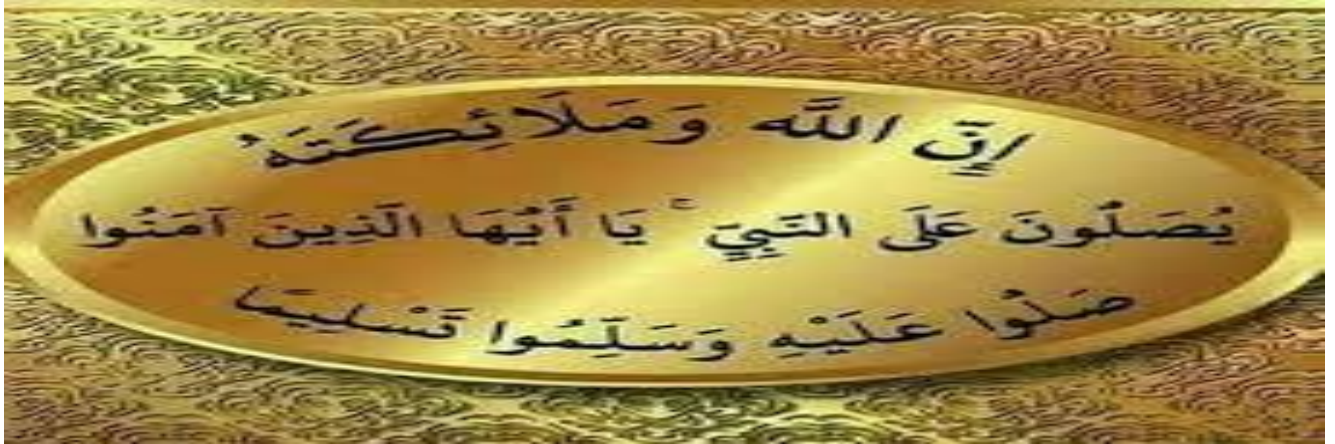 إِنَّ اللَّه وَمَلَائِكَتَهُ
يُصَلُّونَ عَلَى النَّبِيِّ ۚ يَا أَيُّهَا الَّذِينَ آمَنُوا
صَلُّوا عَلَيْهِ وَسَلِّمُوا تَسْلِيمًا